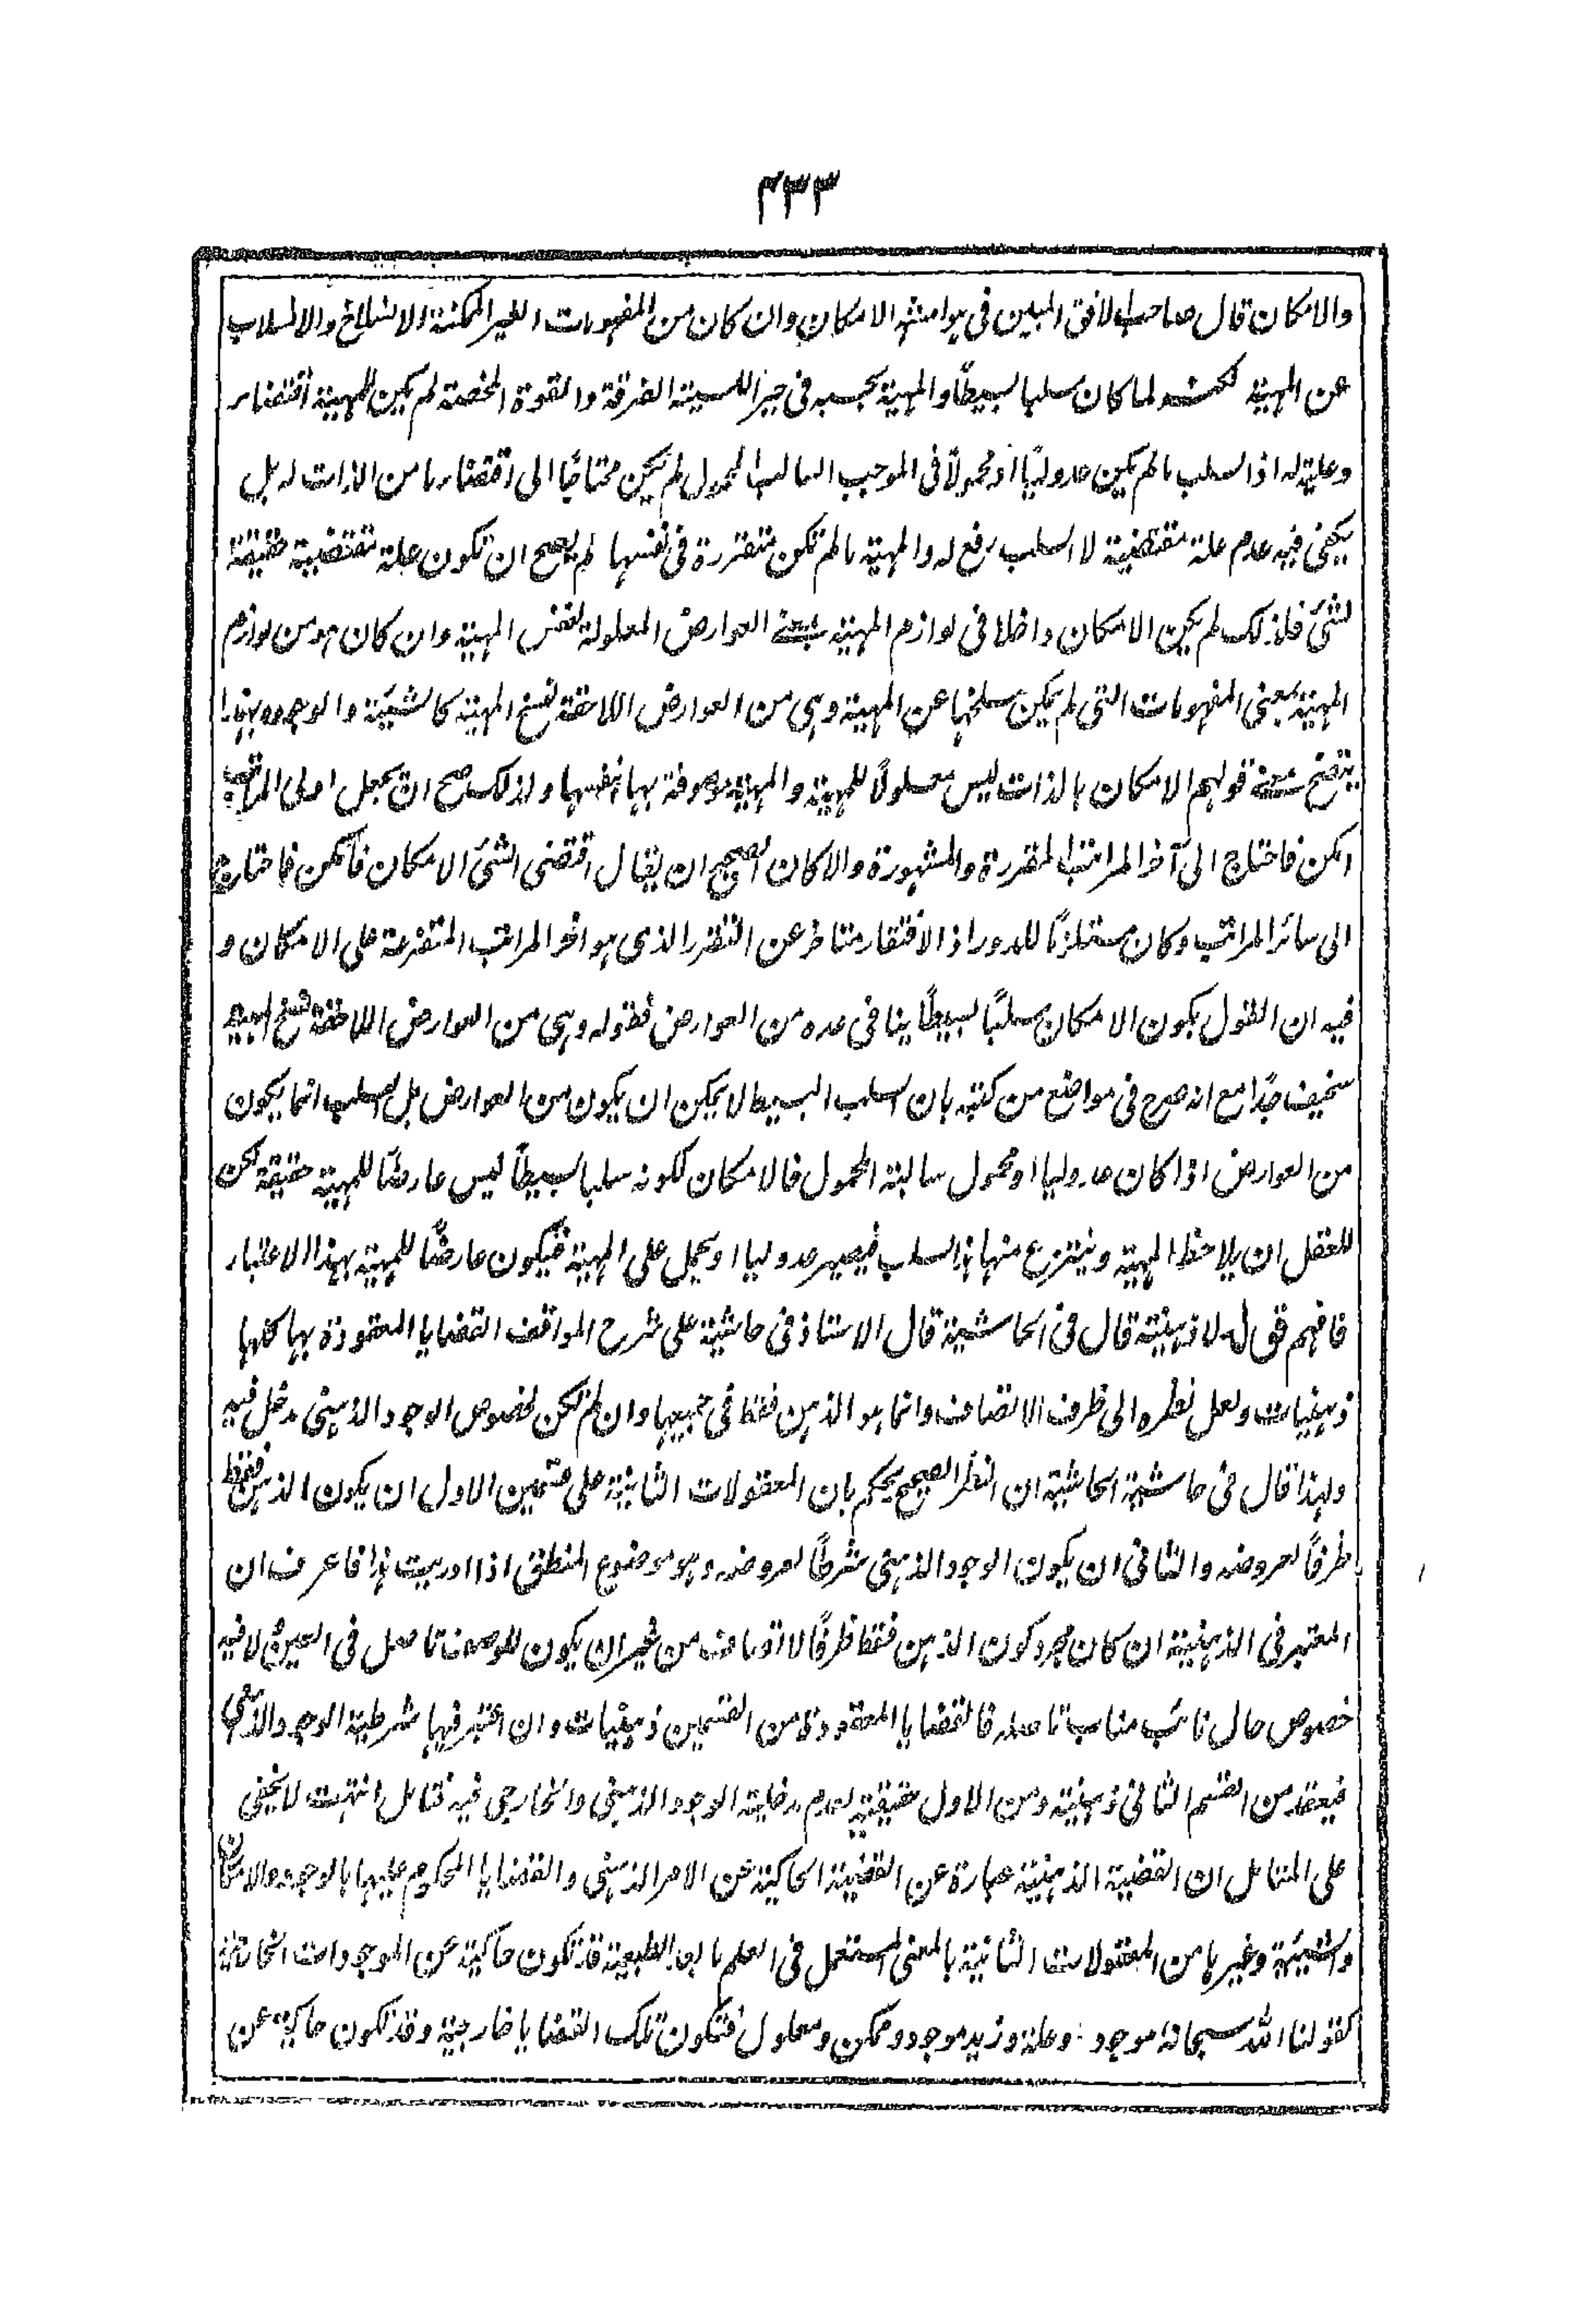 ٤٣٣
والامكان قال صاحب الافق المبين فى هوامشه الامكان وان كان من المفهومات الغير الممكنة الانسلاخ والانسلاب
عن المهية لكنه لما كان سلبا بسيطًا والمهية بحسبه فى حيز الليسية الصرفة والقوة المحضة لم يكن للمهية اقتضاء
وعلية له اذ السلب مالم يكن عدوليًا او محمولًا فى الموجب السالب المحمول لم يكن محتاجًا الى اقتضاء ما من الذات له بل
يكفى فيه عدم علة مقتضية لا السلب رفع له والمهية مالم تكن متقررة فى نفسها لم يصح ان تكون علة مقتضية حقيقة
لشئ فلذلك لم يكن الامكان داخلا فى لوازم المهية بمعنى العوارض المعلولة لنفس المهية وان كان هو من لوازم
المهية بمعنى المفهومات التى لم يمكن سلخها عن المهية وهى من العوارض اللاحقة لسنخ المهية كالشيئية والوجود وبهذا
يتضح معنى قولهم الامكان بالذات ليس معلولًا للمهية والمهية موصوفة بها بنفسها ولذلك صح ان يجعل اولى المراتب
امكن فاحتاج الى آخر المراتب المقررة والمشهورة والا كان الصحيح ان يقال اقتضى الشئ الامكان فامكن فاحتاج
الى سائر المراتب وكان مستلزمًا للدور اذ الافتقار متاخر عن التقرر الذى هو آخر المراتب المتفرعة على الامكان و
فيه ان القول بكون الامكان سلبًا بسيطًا ينافى عده من العوارض فقوله وهى من العوارض اللاحقة لسنخ المهية
سخيف جدًا مع انه صرح فى مواضع من كتبه بان السلب البسيط لا يمكن ان يكون من العوارض بل السلب انما يكون
من العوارض اذا كان عدوليا او محمول سالبة المحمول فالامكان لكونه سلبا بسيطًا ليس عارضًا للمهية حقيقة لكن
للعقل ان يلاحظ المهية وينتزع منها هذا السلب فيصير عدوليا او يحمل على المهية فيكون عارضًا للمهية بهذا الاعتبار
فافهم قوله لا ذهنية قال فى الحاشية قال الاستاذ فى حاشية على شرح المواقف القضايا المعقودة بها كلها
ذهنيات ولعل نظره الى ظرف الاتصاف وانما هو الذهن فقط فى جميعها وان لم تكن لخصوص الوجود الذهنى مدخل فيه
ولهذا قال فى حاشية الحاشية ان النظر الصحيح يحكم بان المعقولات الثانية على قسمين الاول ان يكون الذهن فقط
ظرفًا لعروضه والثانى ان يكون الوجود الذهنى شرطًا لعروضه وهو موضوع المنطق اذا دريت هذا فاعرف ان
المعتبر فى الذهنية ان كان مجرد كون الذهن فقط ظرفًا لاتصاف من غير ان يكون للموصوف تاصل فى العين ولا فيه
خصوص حال نائب مناب تاصله فالقضايا المعقودة من القسمين ذهنيات وان اعتبر فيها شرطية الوجود الذهنى
فيعقد من القسم الثانى ذهنية ومن الاول حقيقية لعدم مدخلية الوجود الذهنى والخارجى فيه فتامل انتهت لا يخفى
على المتامل ان القضية الذهنية عبارة عن القضية الحاكية عن الامر الذهنى والقضايا المحكوم عليها بالوجود والامكان
والشيئية وغيرها من المعقولات الثانية بالمعنى المستعمل فى العلم ما بعد الطبيعة قد تكون حاكية عن الموجودات الخارجية
كقولنا الله سبحانه موجود وعلة وزيد موجود وممكن ومعلول فتكون تلك القضايا خارجية وقد تكون حاكية عن